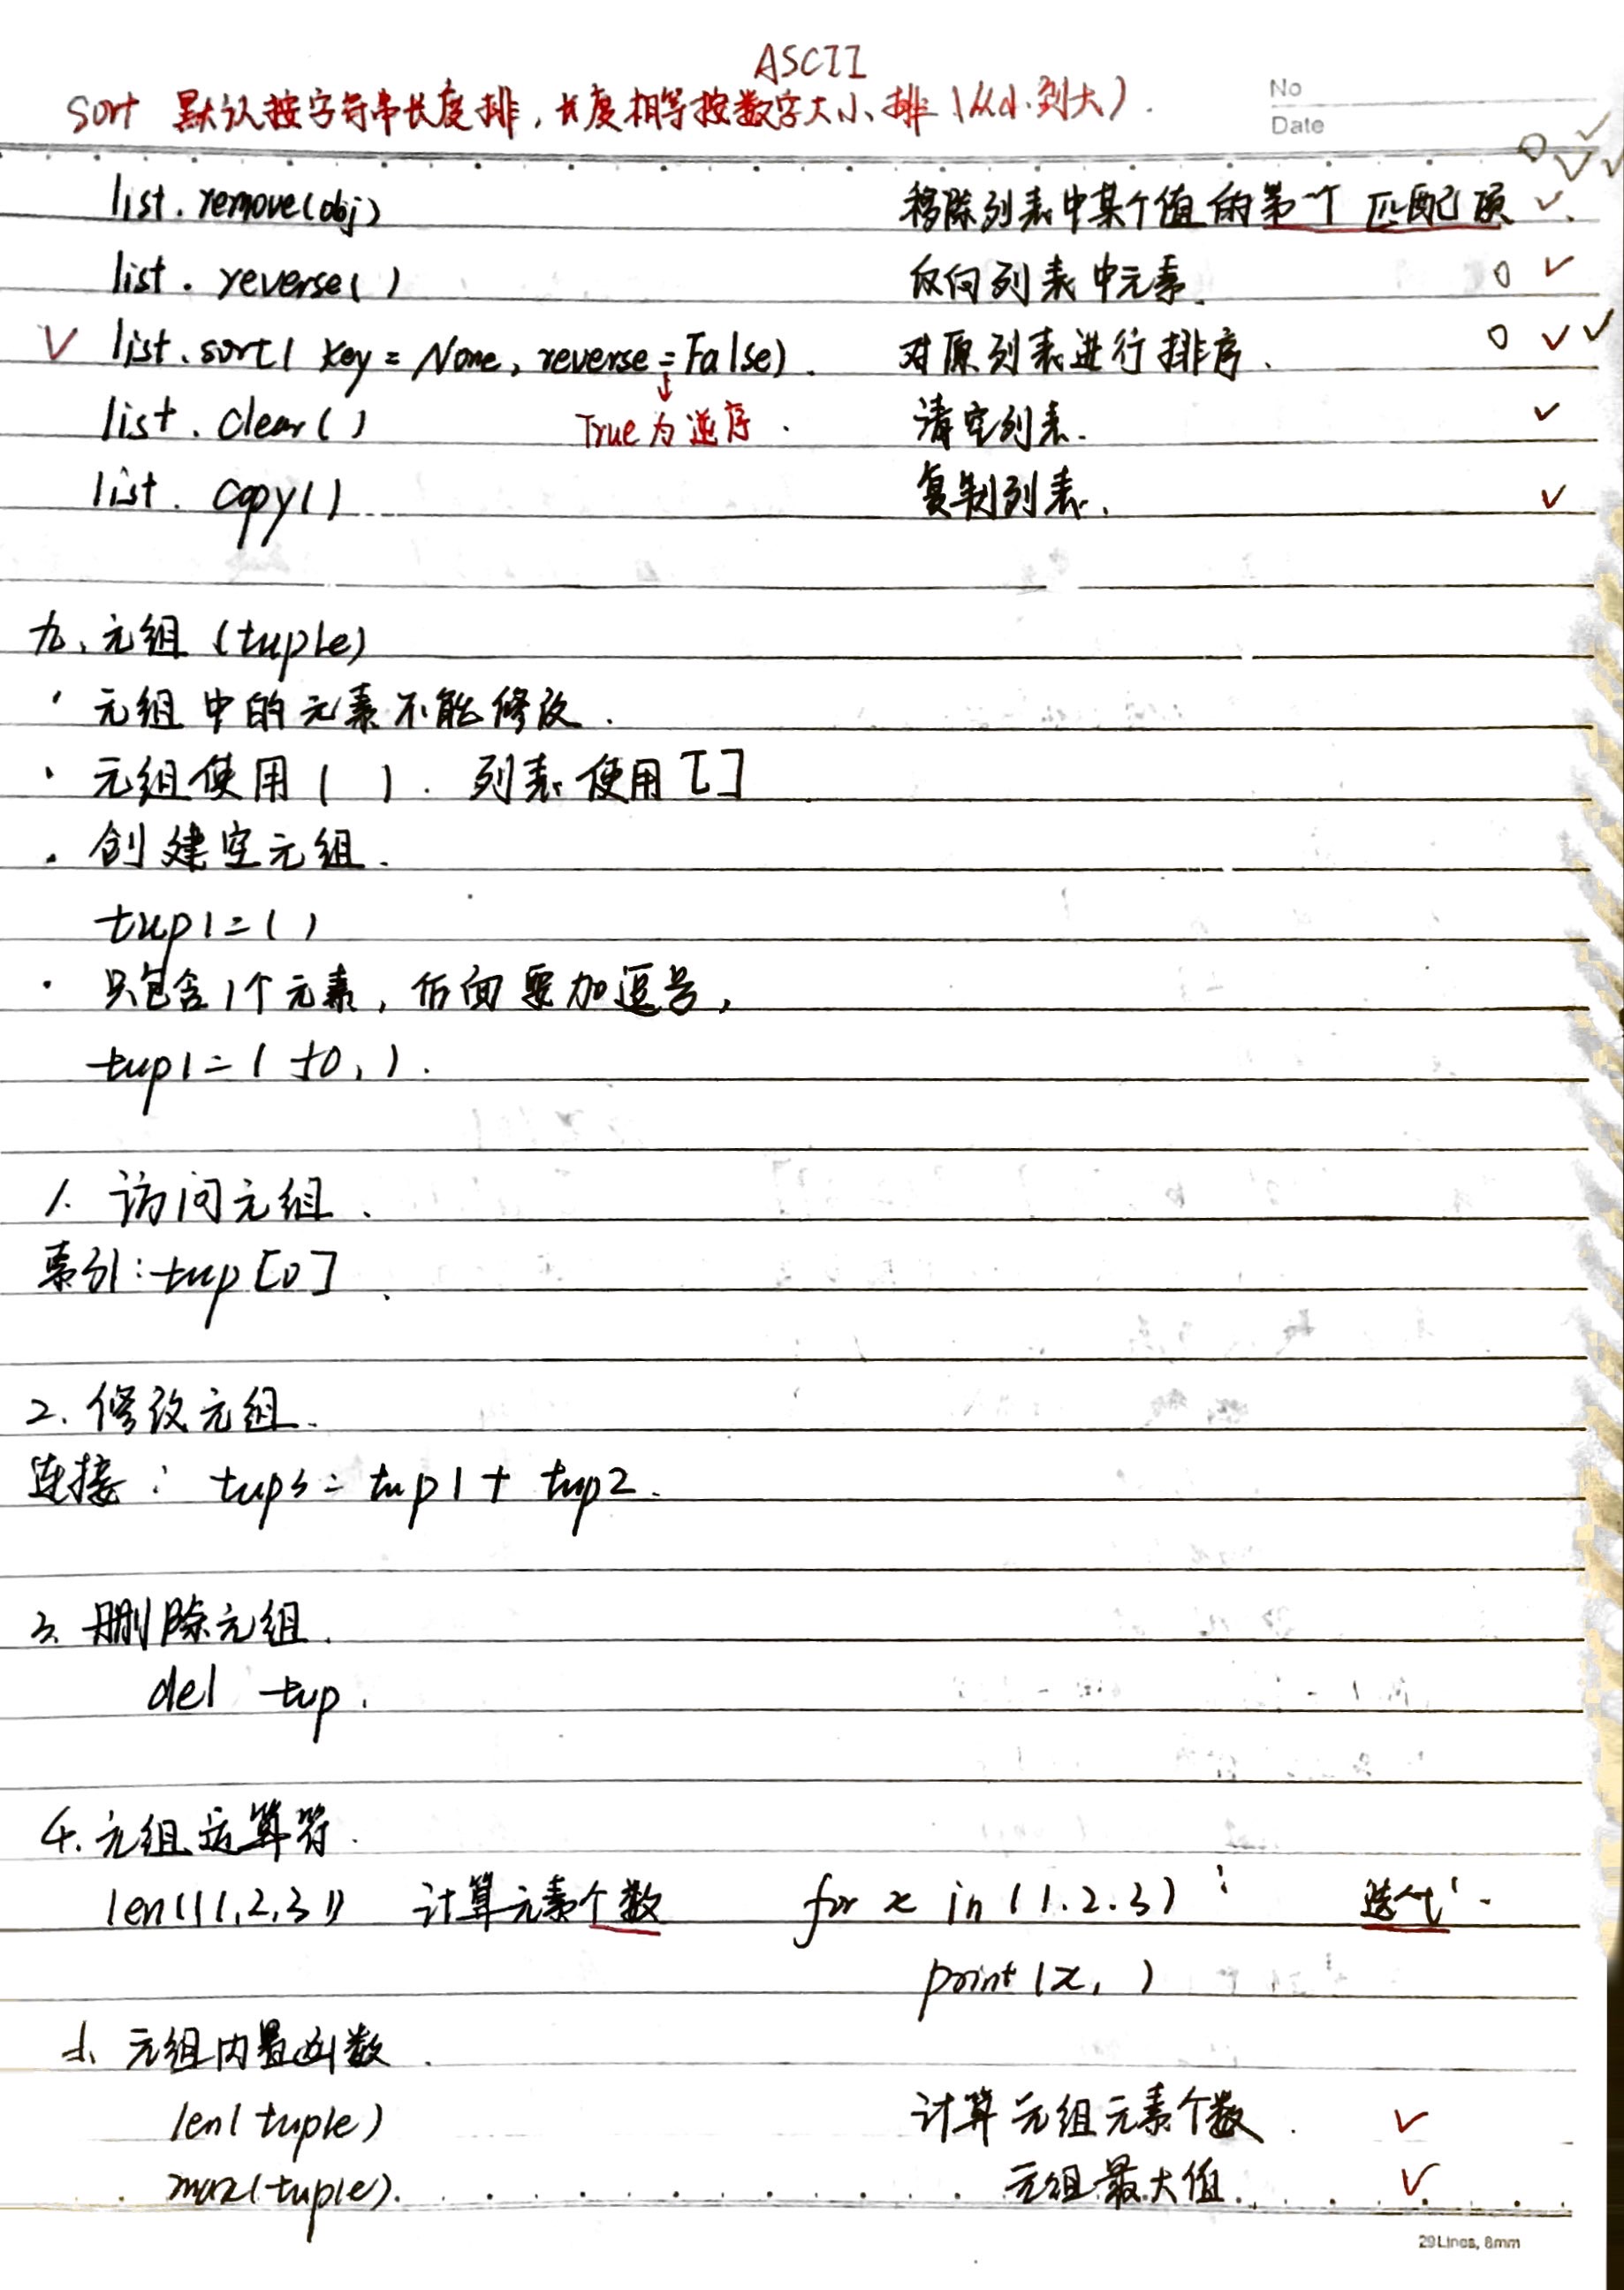 ASCII
sort 默认按字符串长度排,长度相等按数字大小排(从小到大).
No
Date
list.remove(obj) 移除列表中某个值的第一个匹配项
list.reverse() 反向列表中元素.
list.sort(key=None, reverse=False). 对原列表进行排序.
list.clear() True为逆序. 清空列表.
list.copy() 复制列表.
九、元组(tuple)
· 元组中的元素不能修改.
· 元组使用( ). 列表使用[]
· 创建空元组.
tup1=()
· 只包含1个元素,后面要加逗号,
tup1=(50,).
1. 访问元组.
索引:tup[0].
2. 修改元组.
连接: tup3=tup1+tup2.
3. 删除元组.
del tup.
4. 元组运算符.
len((1,2,3)) 计算元素个数 for x in (1.2.3): 迭代.
print(x,)
5、元组内置函数.
len(tuple) 计算元组元素个数.
max(tuple). 元组最大值.
29Lines, 8mm